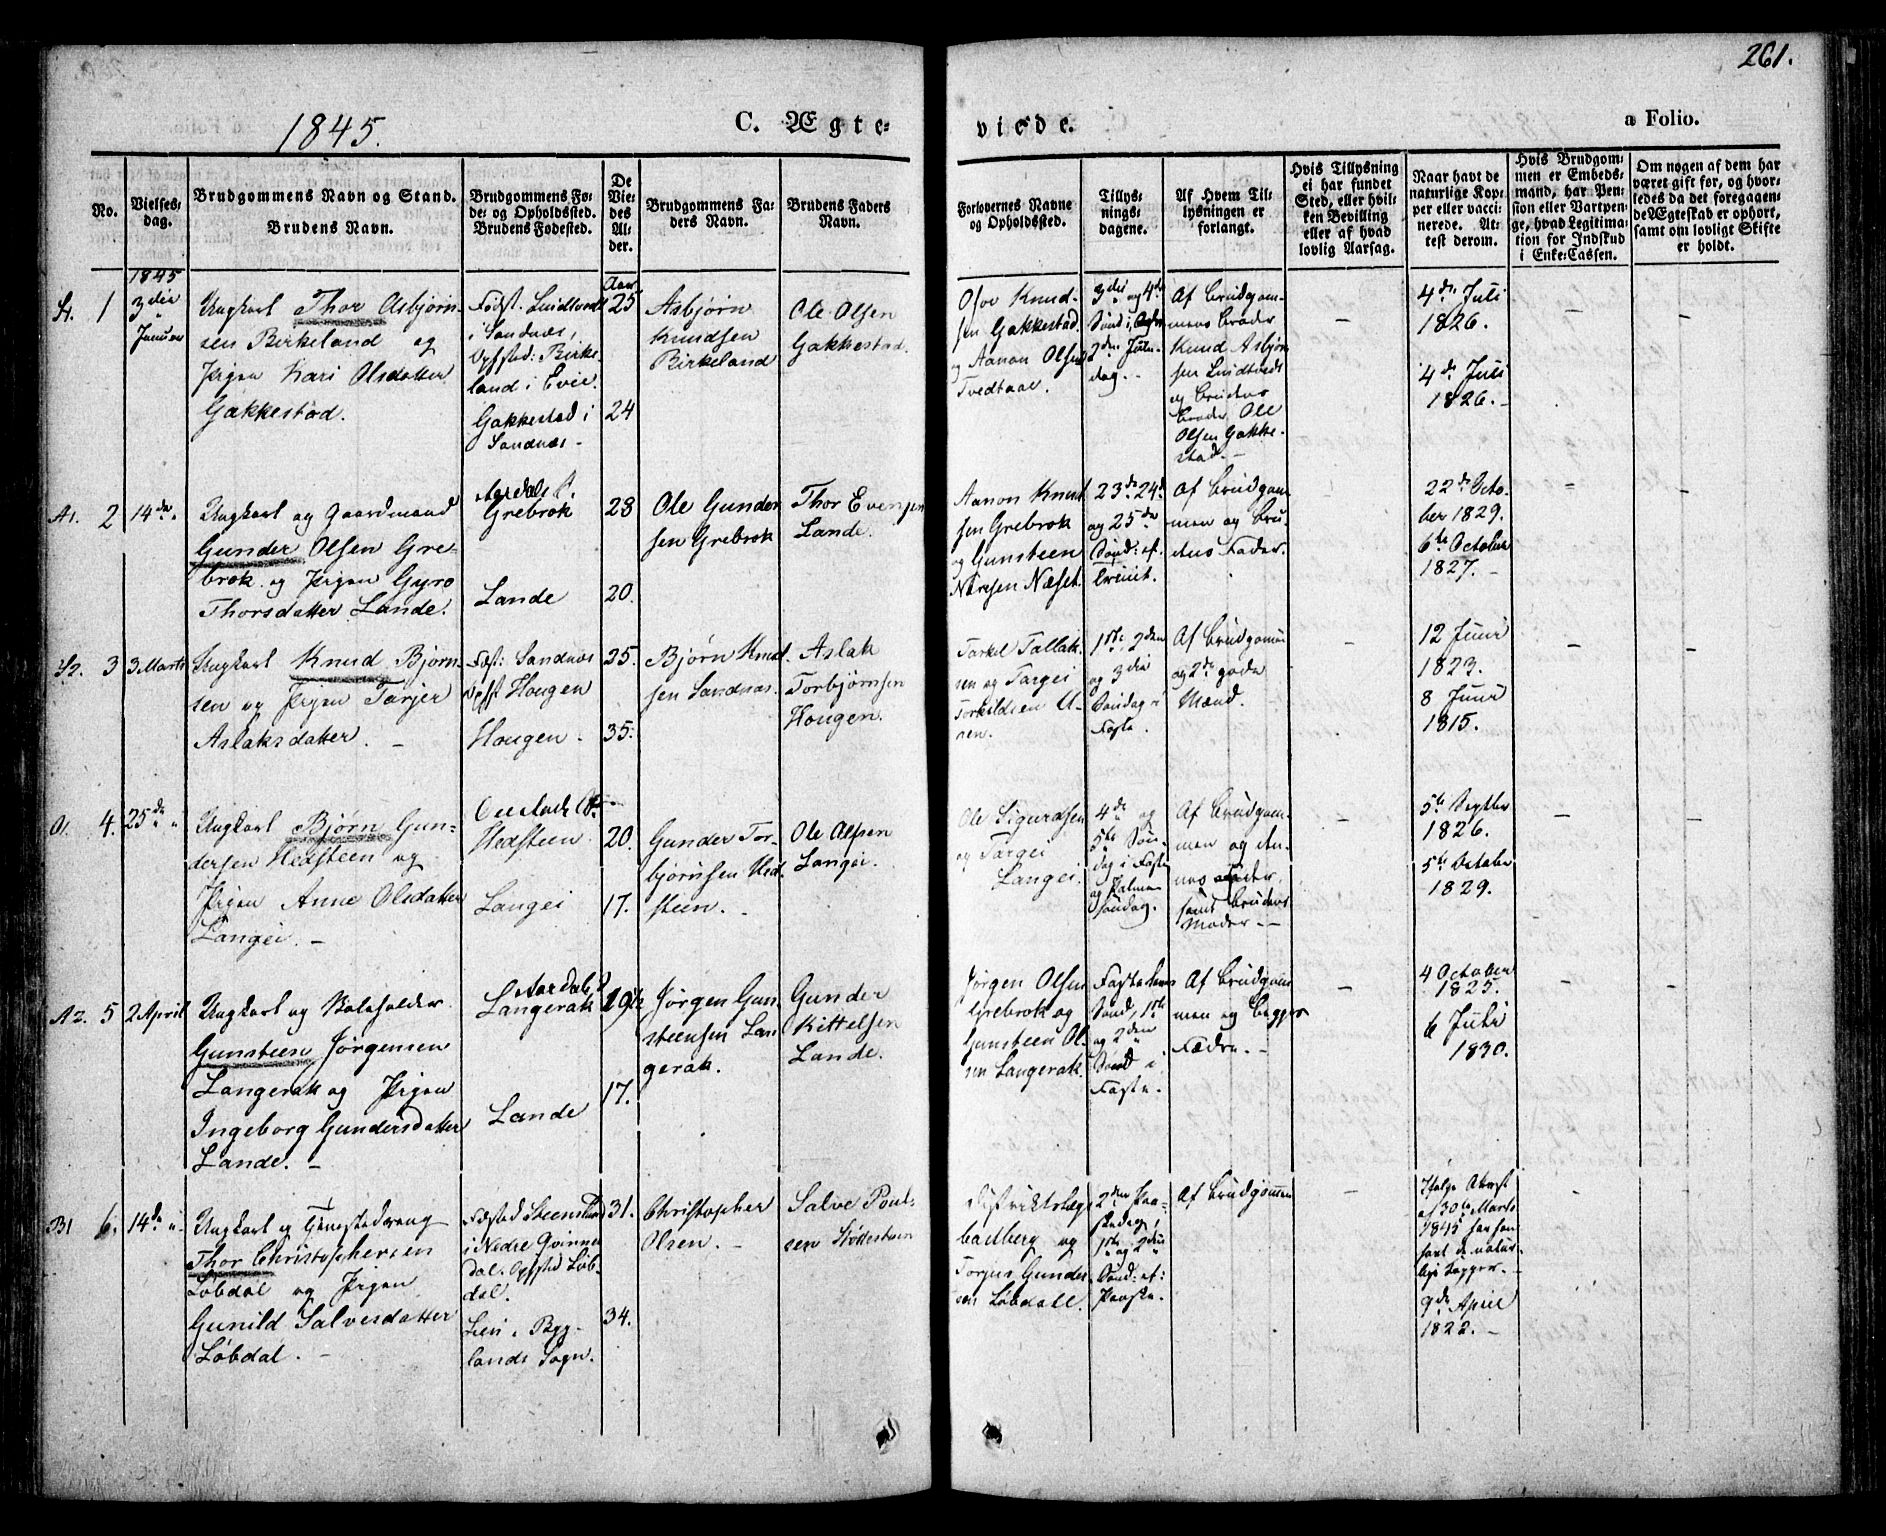 261.
1845.
C. Ægte-
viede.
a Folio.
No.
Vielses-
dag.
Brudgommens Navn og Stand.
Brudens Navn.
Brudgommens Fø-
de- og Opholdssted.
Brudens Fødested.
De
Vie-
des
Al-
der.
Brudgommens Fa-
ders Navn.
Brudens Faders
Navn.
Forlovernes Navne
og Opholdssted.
Tillys-
nings-
dagene.
Af Hvem Til-
lysningen er
forlangt.
Hvis Tillysning
ei har fundet
Sted, eller hvil-
ken Bevilling
eller af hvad
lovlig Aarsag.
Naar havt de
naturlige Kop-
per eller vacci-
nerede. At-
test derom.
Hvis Brudgom-
men er Embeds-
mand, har Pen-
sion eller Vartpen-
ge, hvad Legitima-
tion for Indskud
i Enke-Cassen.
Om nogen af dem har
været gift før, og hvor-
ledes da det foregaaen-
de Ægteskab er ophørt,
samt om lovligt Skifte
er holdt.
1
1845
3die
Januar
Ungkarl Thor Asbjørn-
sen Birkeland og
Pigen Kari Olsdatter
Gakkestad.
i Sandnæs,
Opsted: Birke-
land i Evie.
Gakkestad i
Sandnæs -
Aar
25
24
Asbjørn
Knudsen
Birkeland
Ole Olsen
Gakkestad.
Knud-
sen Gakkestad
og Aanon Olsen
Tvedtaae.
3die og 4de
2den Jule-
dag. -
Af Brudgom-
mens Broder
Knud Asbjørn-
sen
og Brudens
Broder Ole
Olsen Gakke-
stad. -
4de Juli
1826.
4de Juli
1826. -
A1. 2
14de "
Ungkarl og Gaardmand
Gunder Olsen Gre-
brok og Pigen Gyro
Thorsdatter Lande.
Aardals S.
Grebrok
Lande
28
20.
Ole Gunder-
sen Grebrok
Thor Evensen
Lande.
Aanon Knud-
sen Grebrok
og Gunsteen
Næset.
23de 24de
og 25de
Sønd: ef.
Trinit.
Af Brudgom-
men og Bru-
dens Fader.
22de Octo-
ber 1829.
6te October
1827. -
3
3 Marts
Ungkarl Knud Bjørn-
sen og Pigen Tarjer
Aslaksdatter. -
Fød: Sandnæs
Opst Hougen
Hougen.
25.
35.
Bjørn Knud-
sen Sandnæs.
Aslak
Torbjørnsen
Hougen.
Torkel Tallak-
sen og Targei
Torkildsen
1ste 2den
og 3die
Søndag i
Faste.
Af Brudgommen
og 2de gode
Mænd.
12 Juni
1823.
8 Juni
1815.
O1. 4.
25de "
Ungkarl Bjørn Gun-
dersen Hedsteen og
Pigen Anne Olsdatter
Langei. -
Hedsteen
Langei
20.
17.
Gunder Tor-
bjørnsen Hed-
steen. -
Ole Olsen
Langei.
Ole Sigurdsen
og Targei
Langei.
4de og
5te Søn-
dag i Faste
og Palme-
søndag.
Af Brudgom-
men og den-
nes Fader,
samt Brudens
Moder. -
5te Septbr
1826.
5te October
1829.
A2. 5
2 April
Ungkarl og
Gunsteen Jørgensen
Langerak og Pigen
Ingeborg Gundersdatter
Lande. -
Aardals S
Langerak
Lande
17.
Jørgen Gun-
steensen Lan-
gerak.
Gunder
Kittelsen
Lande.
Jørgen Olsen
Grebrok og
Gunsteen Ol-
sen Langerak.
Fastelavns
Sønd, 1ste
og 2den
Sønd i
Faste.
Af Brudgom-
men og Begges
Fædre. -
4 October
1825.
6 Juli
1830.
B1 6.
14de "
Ungkarl og
Thor Christophersen
Løbdal og Pigen
Gunild Salvesdatter
Løbdal. -
i Nedre Qvinnes-
dal. Opsted Løb-
dal.
i Byg-
lands Sogn.
31.
34.
Christopher
Olsen. -
Salve Poul-
sen
Districtslæge
og
Torjus Gunder-
sen Løbdall.
2den Paa-
skedag,
1ste og 2den
Sønd: ef:
Paaske.
Af Brudgommen
Ifølge Attest
af 30te Marts
1845 har han
havt de natur-
lige Kopper. -
9de April
1822. -